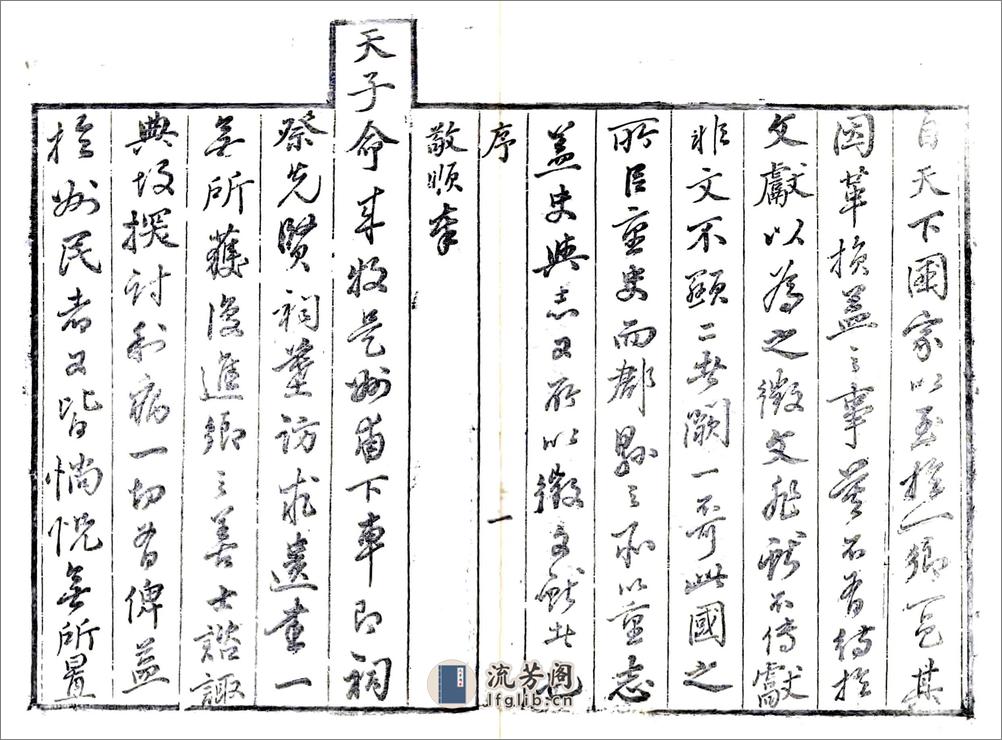 自天下國家以至於一鄉一邑其
因革損益之事莫不有待於
文獻以為之徵文非獻不傳獻
非文不顯二者闕一不可此國之
所以重史而郡縣之所以重志
蓋史與志又所以徵文獻者也
序
一
敬順奉
天子命來牧是州甫下車即祠
祭先賢祠墓訪求遺書一
無所獲復進鄉之善士諮諏
典故探討利病一切有俾益
於州民者又皆惝恍無所置
流芳阁
lfglib.cn